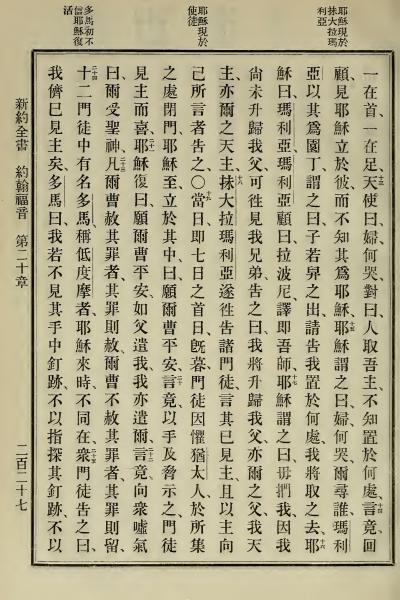 耶穌現於
抹大拉瑪
利亞
耶穌現於
使徒
多馬初不
信耶穌復
活
一在首、一在足、十三天使曰、婦何哭、對曰、人取吾主、不知置於何處、十四言竟回
顧、見耶穌立於彼、而不知其爲耶穌、十五耶穌謂之曰、婦何哭、爾尋誰、瑪利
亞以其爲園丁、謂之曰、子若舁之出、請告我置於何處、我將取之去、十六耶
穌曰、瑪利亞、瑪利亞顧曰、拉波尼、譯卽吾師、十七耶穌謂之曰、毋捫我、因我
尚未升歸我父、可徃見我兄弟、告之曰、我將升歸我父、亦爾之父、我天
主、亦爾之天主、十八抹大拉瑪利亞遂徃告諸門徒、言其已見主、且以主向
己所言者告之、〇十九當日卽七日之首日旣暮、門徒因懼猶太人、於所集
之處閉門、耶穌至、立於其中、曰、願爾曹平安、二十言竟、以手及脅示之、門徒
見主而喜、二十一耶穌復曰、願爾曹平安、如父遣我、我亦遣爾、二十二言竟、向衆噓氣
曰、爾受聖神、二十三凡爾曹赦其罪者、其罪則赦、爾曹不赦其罪者、其罪則留、
二十四十二門徒中有名多馬、稱低度摩者、耶穌來時、不同在、二十五衆門徒告之曰、
我儕已見主矣、多馬曰、我若不見其手中釘跡、不以指探其釘跡、不以
新約全書 約翰福音 第二十章 二百二十七